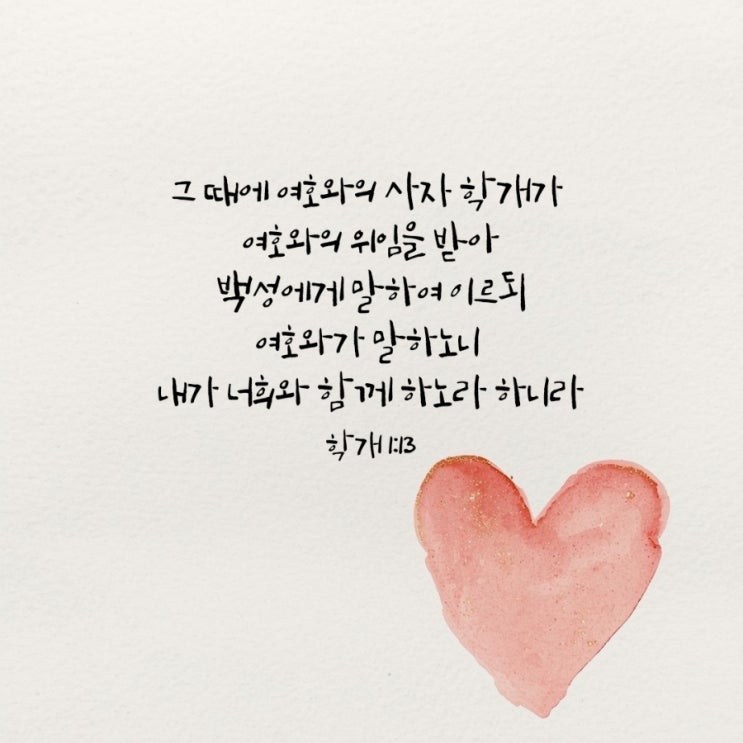 그 때에 여호와의 사자 학개가
여호와의 위임을 받아
백성에게 말하여 이르되
여호와가 말하노니
내가 너희와 함께 하노라 하니라
학개 1:13